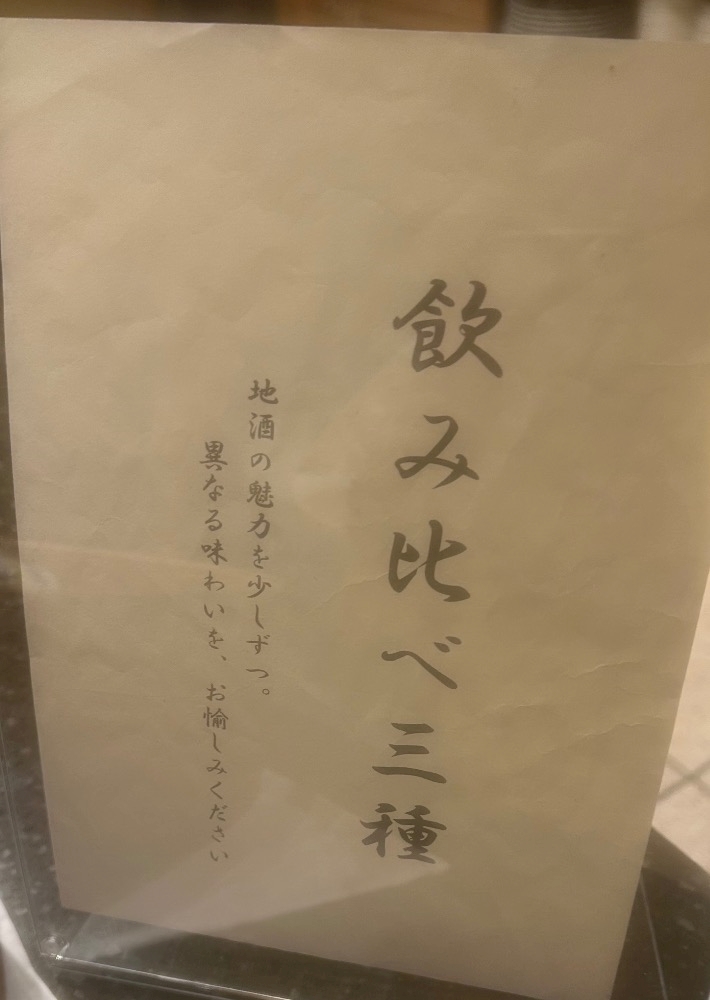 飲み比べ三種
地酒の魅力を少しずつ。
異なる味わいを、お愉しみください